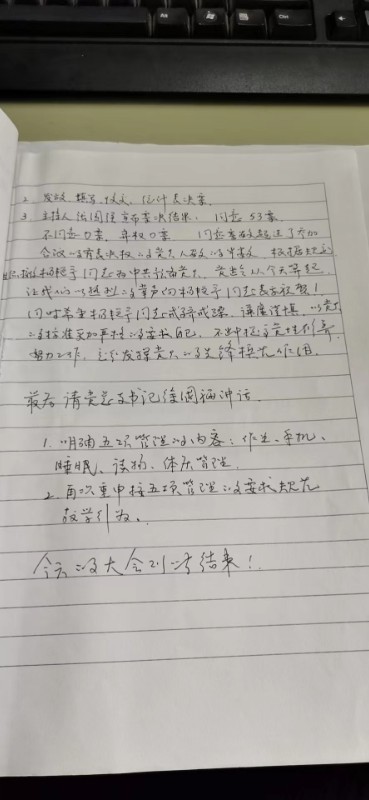 2. 发放、填写、收交、统计表决票
3. 主持人徐国强宣布表决结果: 同意 53票
不同意0票、弃权0票 同意票数超过了参加
会议的有表决权的党员人数的半数 根据规定
同志为中共预备党员 党龄从今天算起
让我们以热烈的掌声向 同志表示祝贺!
同时希望 同志戒骄戒躁、谦虚谨慎、以党员
的标准更加严格的要求自己、不断
努力工作、充分发挥党员的先锋模范作用.
最后 请党总支书记徐国强讲话.
1. 明确五项管理的内容: 作业、手机、
睡眠、读物、体质管理.
2. 再次重申按五项管理的要求规范
教学行为.
今天的大会到此结束!